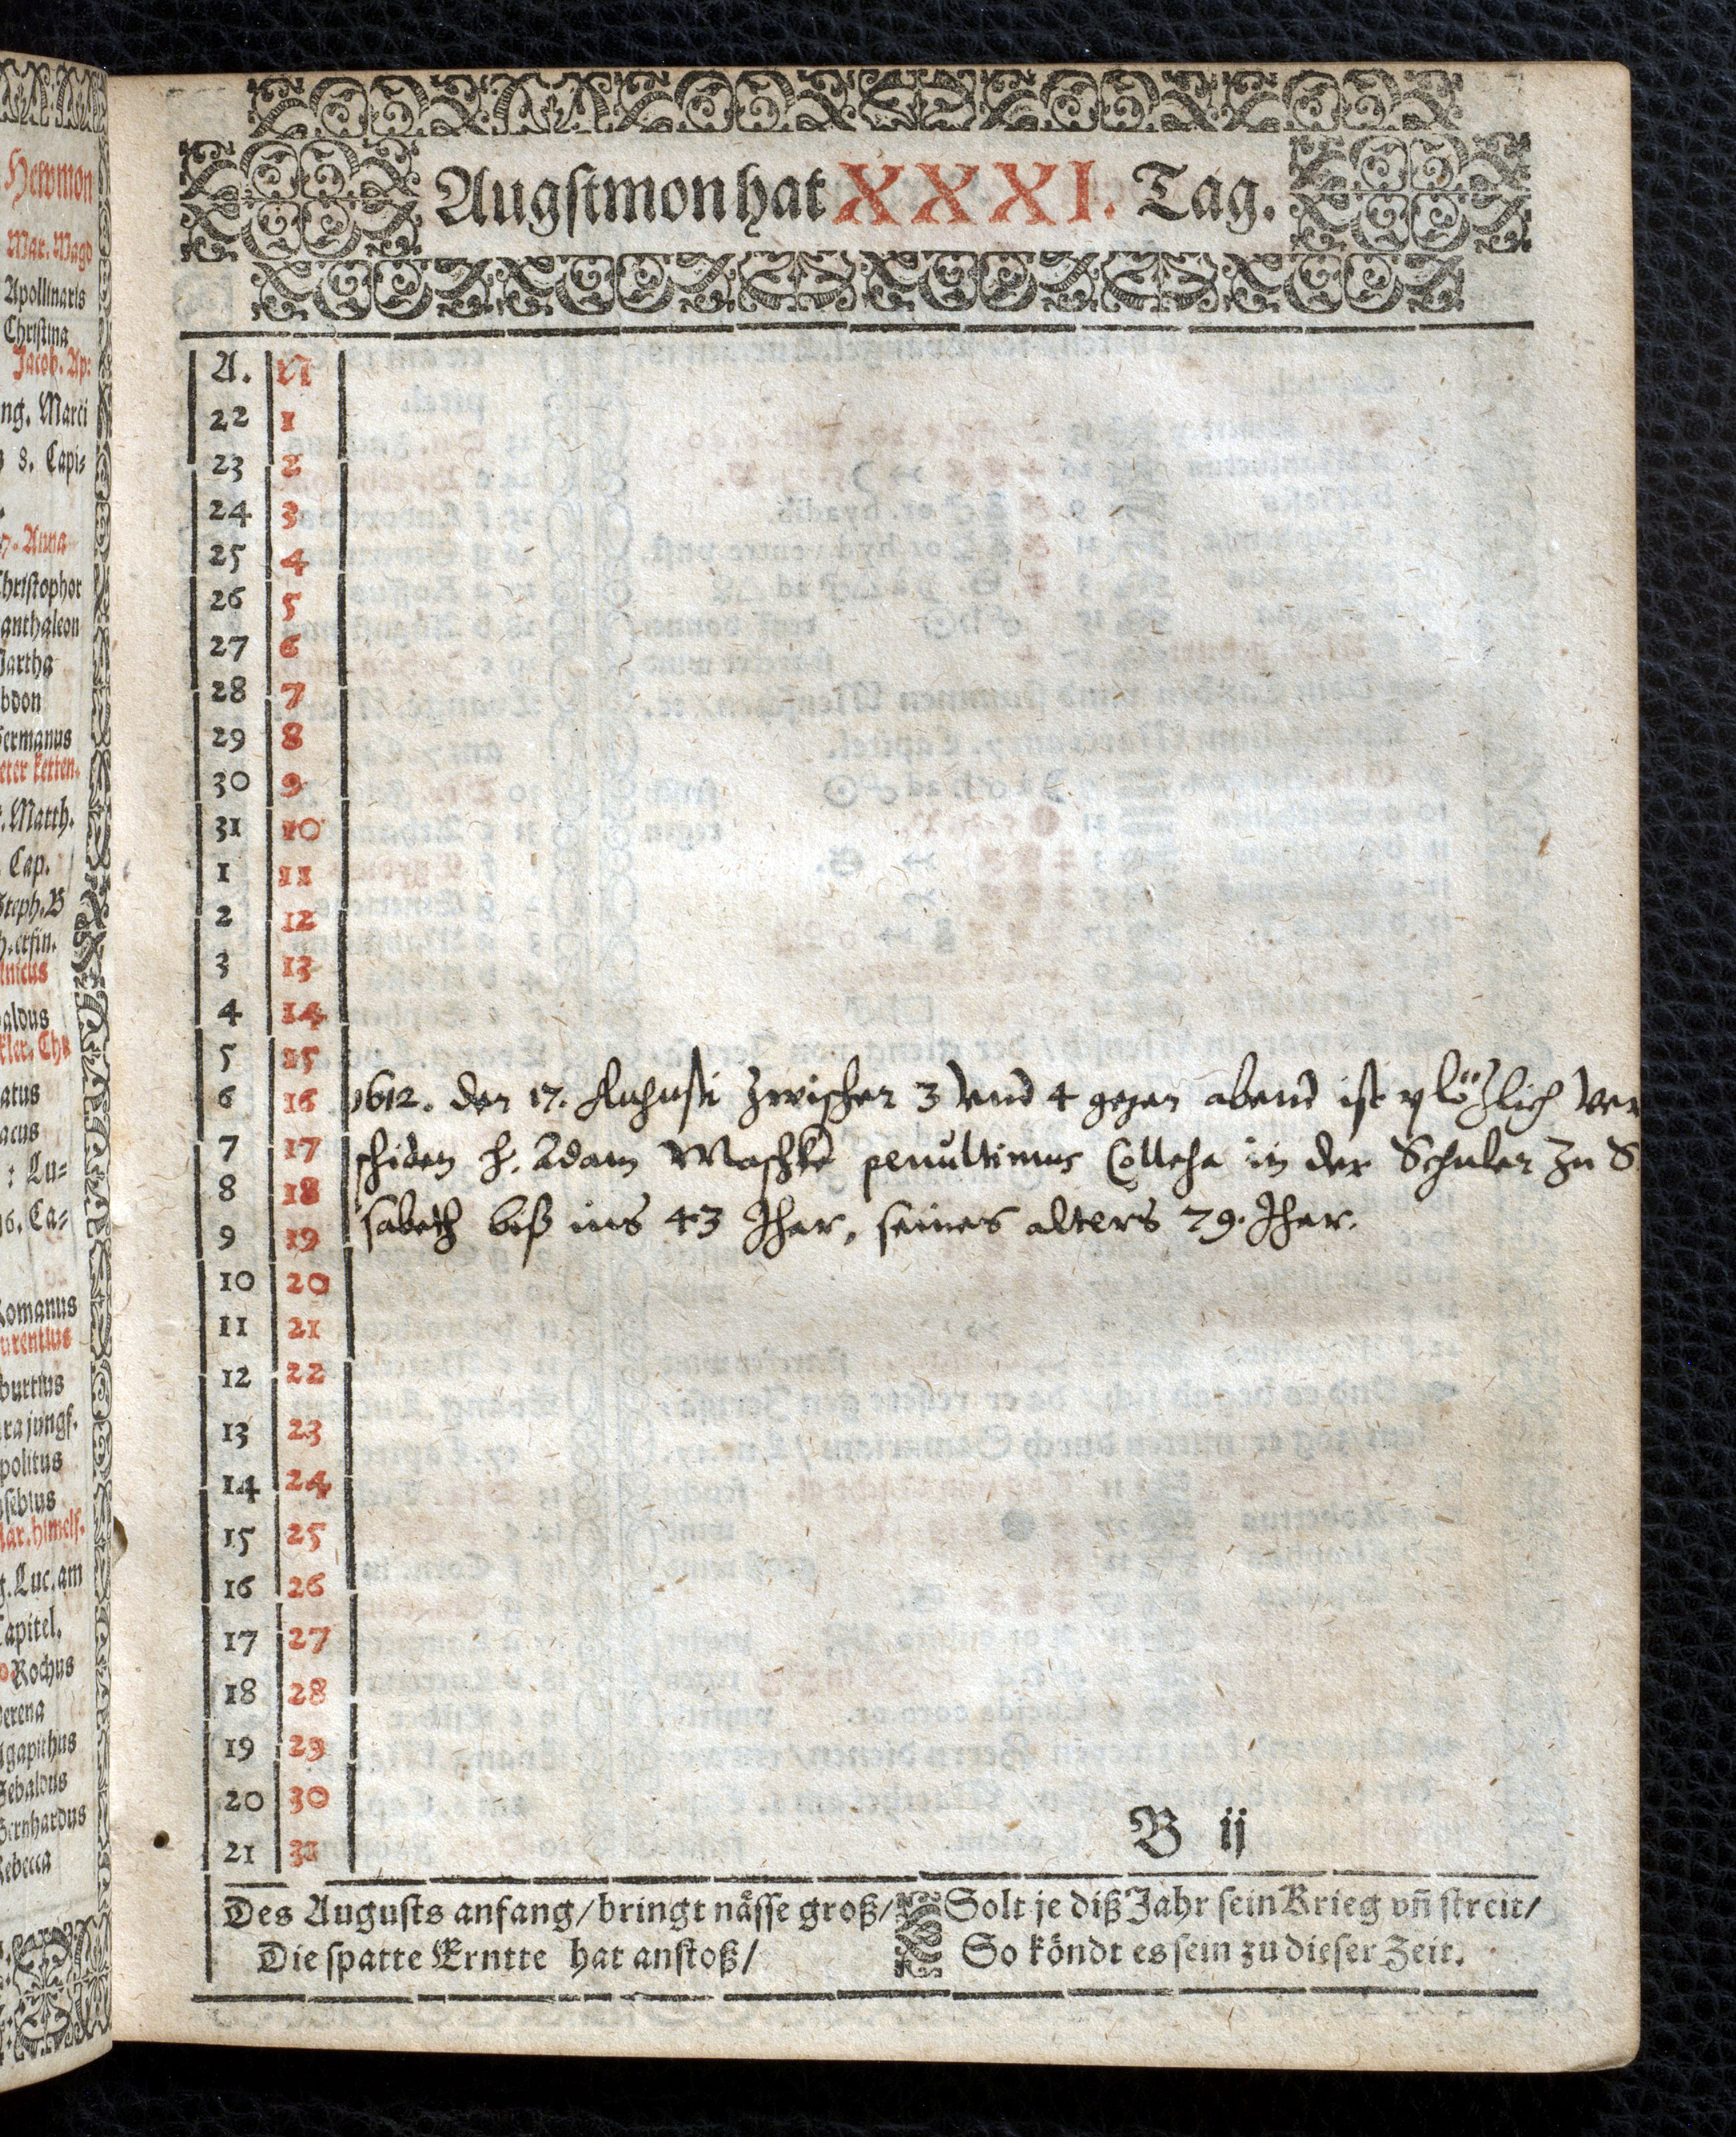 Augstmon hat XXXI. Tag.
A. N
22 1
23 2
24 3
25 4
26 5
27 6
28 7
29 8
30 9
31 10
1 11
2 12
3 13
4 14
5 15
6 16
7 17
8 18
9 19
10 20
11 21
12 22
13 23
14 24
15 25
16 26
17 27
18 28
19 29
20 30
21 31
1612. den 17. Augusti zwischen 3 vnd 4 gegen abend ist plötzlich ver
schiden H. Adam Maschke penultimus Collega in der Schulen zu S.
sabeth biß ins 43 Jhar, seines alters 79. Jhar.
B ij
Des Augusts anfang/bringt nässe groß/
Die spatte Erntte hat anstoß/
Solt je diß Jahr sein Krieg vñ streit/
So köndt es sein zu dieser Zeit.
Hewmon
Mar. Magd
Apollinaris
Christina
Jacob. Ap:
ng. Marci
8. Capi=
7. Anna
hristophor
anthaleon
artha
bdon
ermanus
eter ketten.
. Matth.
Cap.
Steph. B
h. erfin.
inicus
aldus
kler. Chr
atus
acus
: Lu=
6. Ca=
Romanus
urentius
burtius
ara jungf.
politus
sebius
ar. himelf.
g. Luc. am
Capitel.
Rochus
erena
Agapithus
Sebaldus
Bernhardus
Rebecca